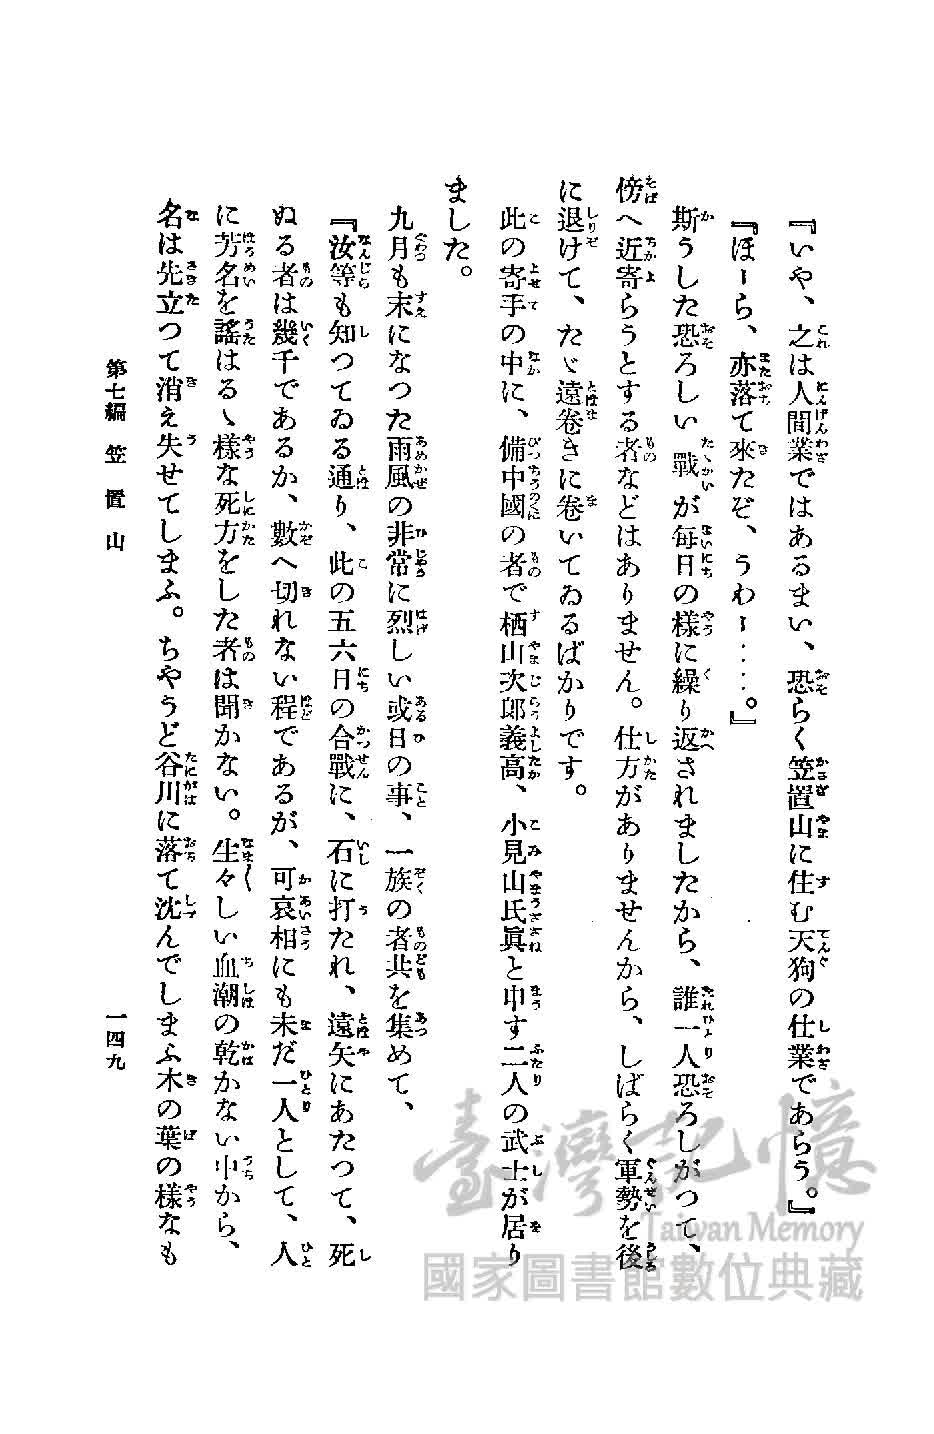 『いや、之は人間業ではあるまい、恐らく笠置山に住む天狗の仕業であらう。』
『ほーら、亦落て來たぞ、うわー‥‥。』
斯うした恐ろしい戰が毎日の樣に繰り返されましたから、誰一人恐ろしがつて、
傍へ近寄らうとする者などはありません。仕方がありませんから、しばらく軍勢を後
に退けて、たゞ遠卷きに卷いてゐるばかりです。
此の寄手の中に、備中國の者で栖山次郎義高、小見山氏眞と申す二人の武士が居り
ました。
九月も末になつた雨風の非常に烈しい或日の事、一族の者共を集めて、
『汝等も知つてゐる通り、此の五六日の合戰に、石に打たれ、遠矢にあたつて、死
ぬる者は幾千であるか、數へ切れない程であるが、可哀相にも未だ一人として、人
に芳名を謠はるゝ樣な死方をした者は聞かない。生々しい血潮の乾かない中から、
名は先立つて消え失せてしまふ。ちやうど谷川に落て沈んでしまふ木の葉の樣なも
第七編 笠置山
一四九
臺灣記憶
Taiwan Memory
國家圖書館數位典藏